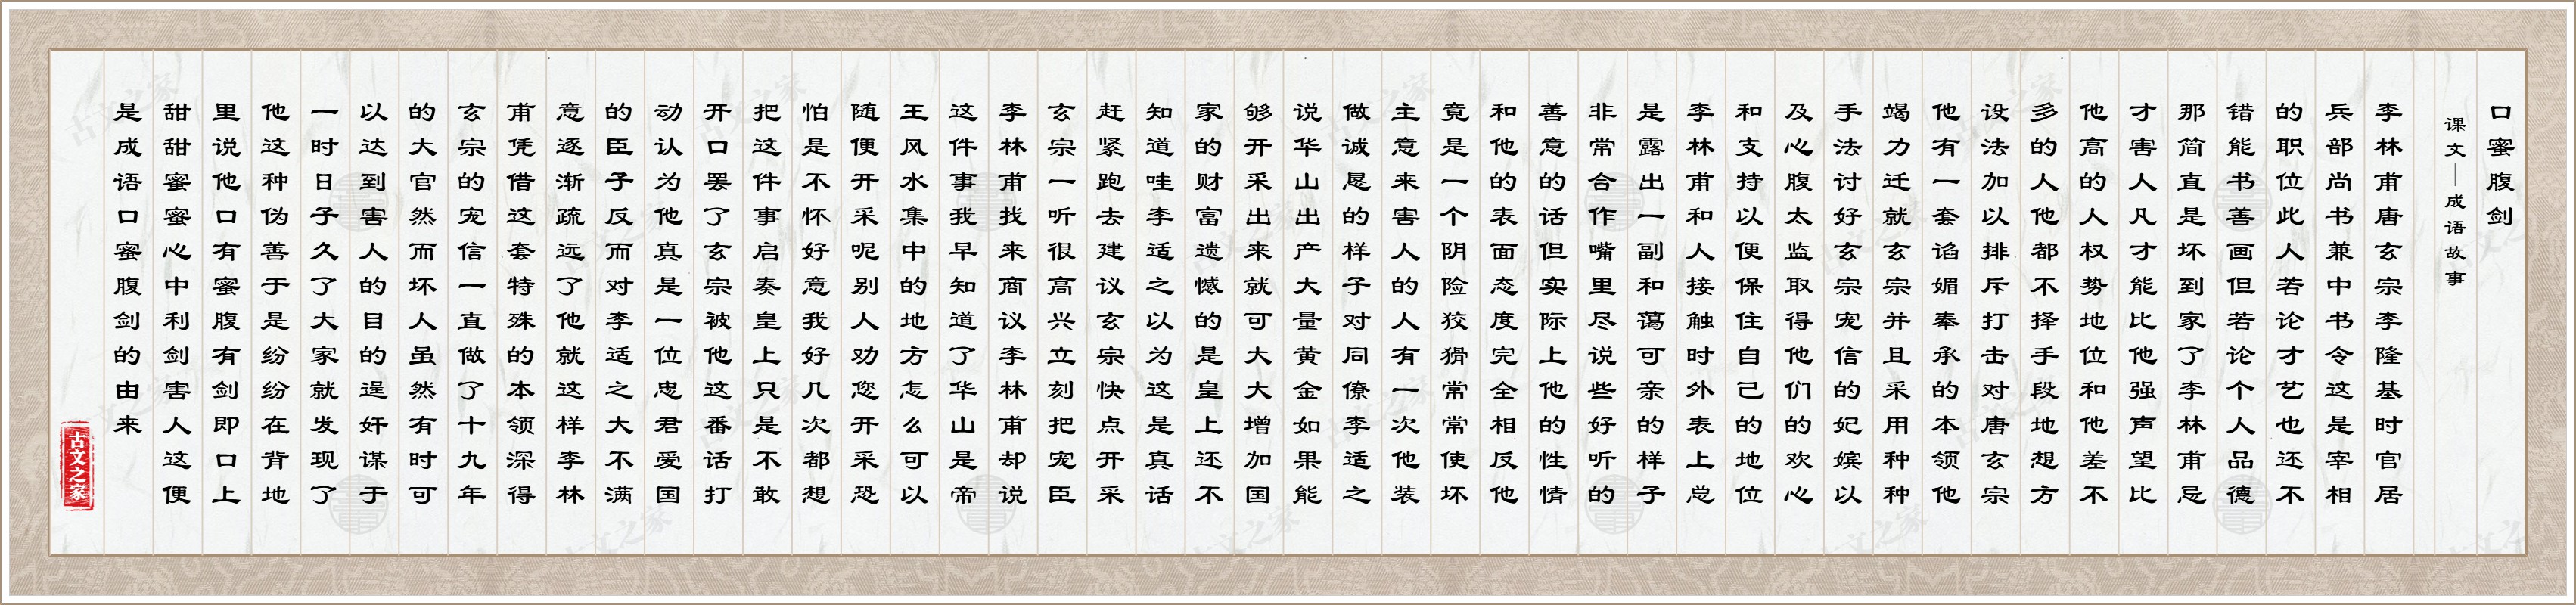 口蜜腹剑
课文—成语故事
李林甫唐玄宗李隆基时官居
兵部尚书兼中书令这是宰相
的职位此人若论才艺也还不
错能书善画但若论个人品德
那简直是坏到家了李林甫忌
才害人凡才能比他强声望比
他高的人权势地位和他差不
多的人他都不择手段地想方
设法加以排斥打击对唐玄宗
他有一套谄媚奉承的本领他
竭力迁就玄宗并且采用种种
手法讨好玄宗宠信的妃嫔以
及心腹太监取得他们的欢心
和支持以便保住自己的地位
李林甫和人接触时外表上总
是露出一副和蔼可亲的样子
非常合作嘴里尽说些好听的
善意的话但实际上他的性情
和他的表面态度完全相反他
竟是一个阴险狡猾常常使坏
主意来害人的人有一次他装
做诚恳的样子对同僚李适之
说华山出产大量黄金如果能
够开采出来就可大大增加国
家的财富遗憾的是皇上还不
知道哇李适之以为这是真话
赶紧跑去建议玄宗快点开采
玄宗一听很高兴立刻把宠臣
李林甫找来商议李林甫却说
这件事我早知道了华山是帝
王风水集中的地方怎么可以
随便开采呢别人劝您开采恐
怕是不怀好意我好几次都想
把这件事启奏皇上只是不敢
开口罢了玄宗被他这番话打
动认为他真是一位忠君爱国
的臣子反而对李适之大不满
意逐渐疏远了他就这样李林
甫凭借这套特殊的本领深得
玄宗的宠信一直做了十九年
的大官然而坏人虽然有时可
以达到害人的目的逞奸谋于
一时日子久了大家就发现了
他这种伪善于是纷纷在背地
里说他口有蜜腹有剑即口上
甜甜蜜蜜心中利剑害人这便
是成语口蜜腹剑的由来
古文之家